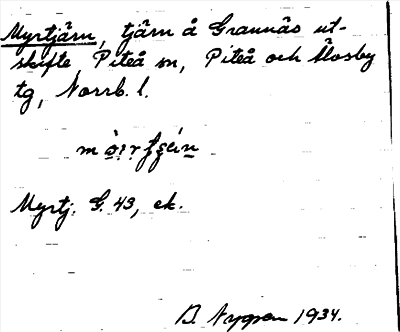 Myrtjärn, tjärn å Grannäs ut-
skifte Piteå sn, Piteå och Älvsby
tg, Norrb. l.
Myrtj. G. 43, ek.
B. Nygren 1934.